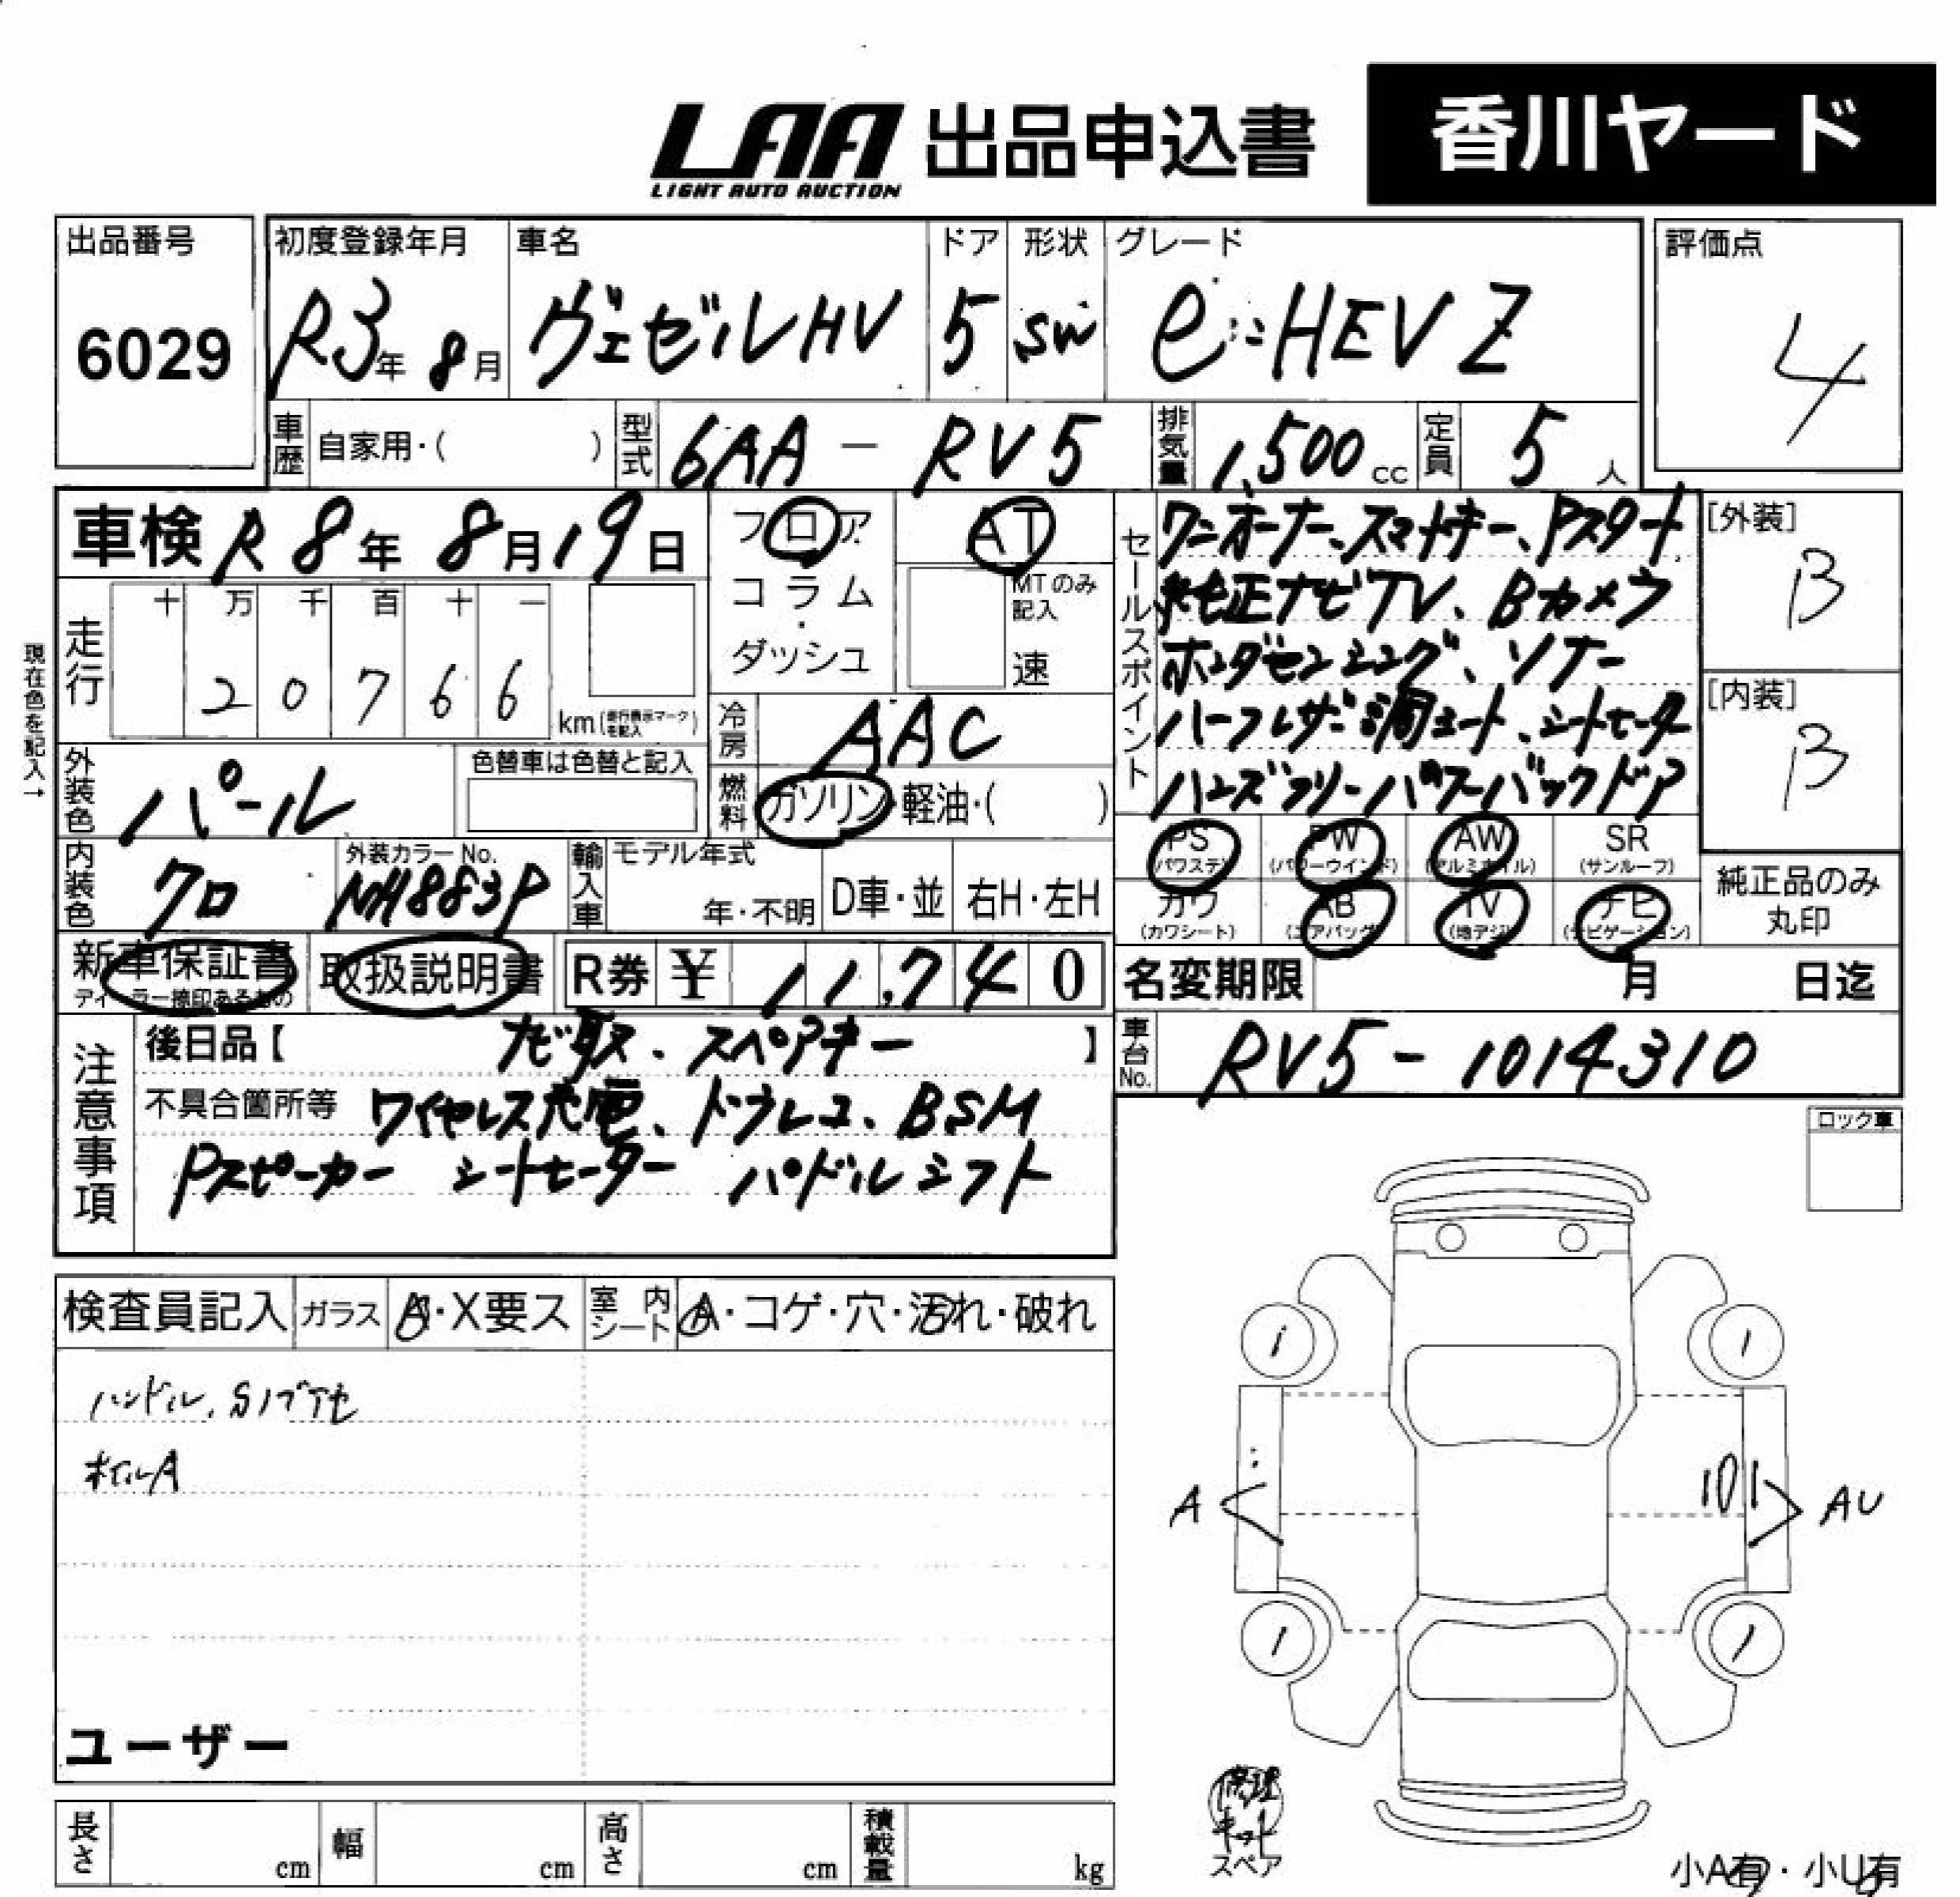 LAA 出品申込書 香川ヤード
LIGHT AUTO AUCTION
出品番号 初度登録年月 車名 ドア 形状 グレード 評価点
6029 R3年 8月 ヴェゼルHV 5 SW e:HEV Z 4
車歴 自家用・( ) 型式 6AA - RV5 排気量 1,500 cc 定員 5 人
車検 R 8年 8月 19日
フロア AT
コラム・ MTのみ記入
ダッシュ 速
セールスポイント
ワンオーナー、スマートキー、Pスタート
純正ナビTV、Bカメラ
ホンダセンシング、ソナー
ハーフレザー調シート、シートヒーター
ハンズフリーパワーバックドア
[外装]
B
[内装]
B
現在色を記入→
走行 十 万 千 百 十 一
2 0 7 6 6 km(走行表示マークを記入)
冷房 AAC
外装色 パール 色替車は色替と記入
燃料 ガソリン・軽油・( )
内装色 クロ 外装カラーNo. NH883P
輸入車 モデル年式 年・不明 D車・並 右H・左H
PS (パワステ) PW (パワーウインド) AW (アルミホイル) SR (サンルーフ)
カワ (カワシート) AB (エアバッグ) TV (地デジ) ナビ (ナビゲーション)
純正品のみ丸印
新車保証書 取扱説明書 R券 ¥ 11,740
ディーラー捺印あるもの
名変期限 月 日迄
注意事項
後日品【 ナビ取、スペアキー 】
車台No. RV5-1014310
不具合箇所等 ワイヤレス充電、ドラレコ、BSM
Pスピーカー シートヒーター パドルシフト
ロック車
検査員記入 ガラス A・X要ス 室内シート A・コゲ・穴・汚れ・破れ
ハンドル、
ホイルA
A
AU
ユーザー
修理キット
スペア
長さ cm 幅 cm 高さ cm 積載量 kg
小A有・小U有